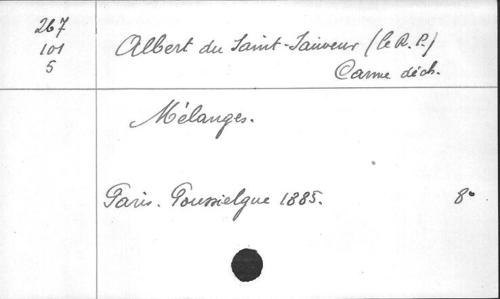 267
101
5
Albert du Saint-Sauveur (le R.P.)
Carme déch.
Mélanges.
Paris. Poussielgue 1885. 8°